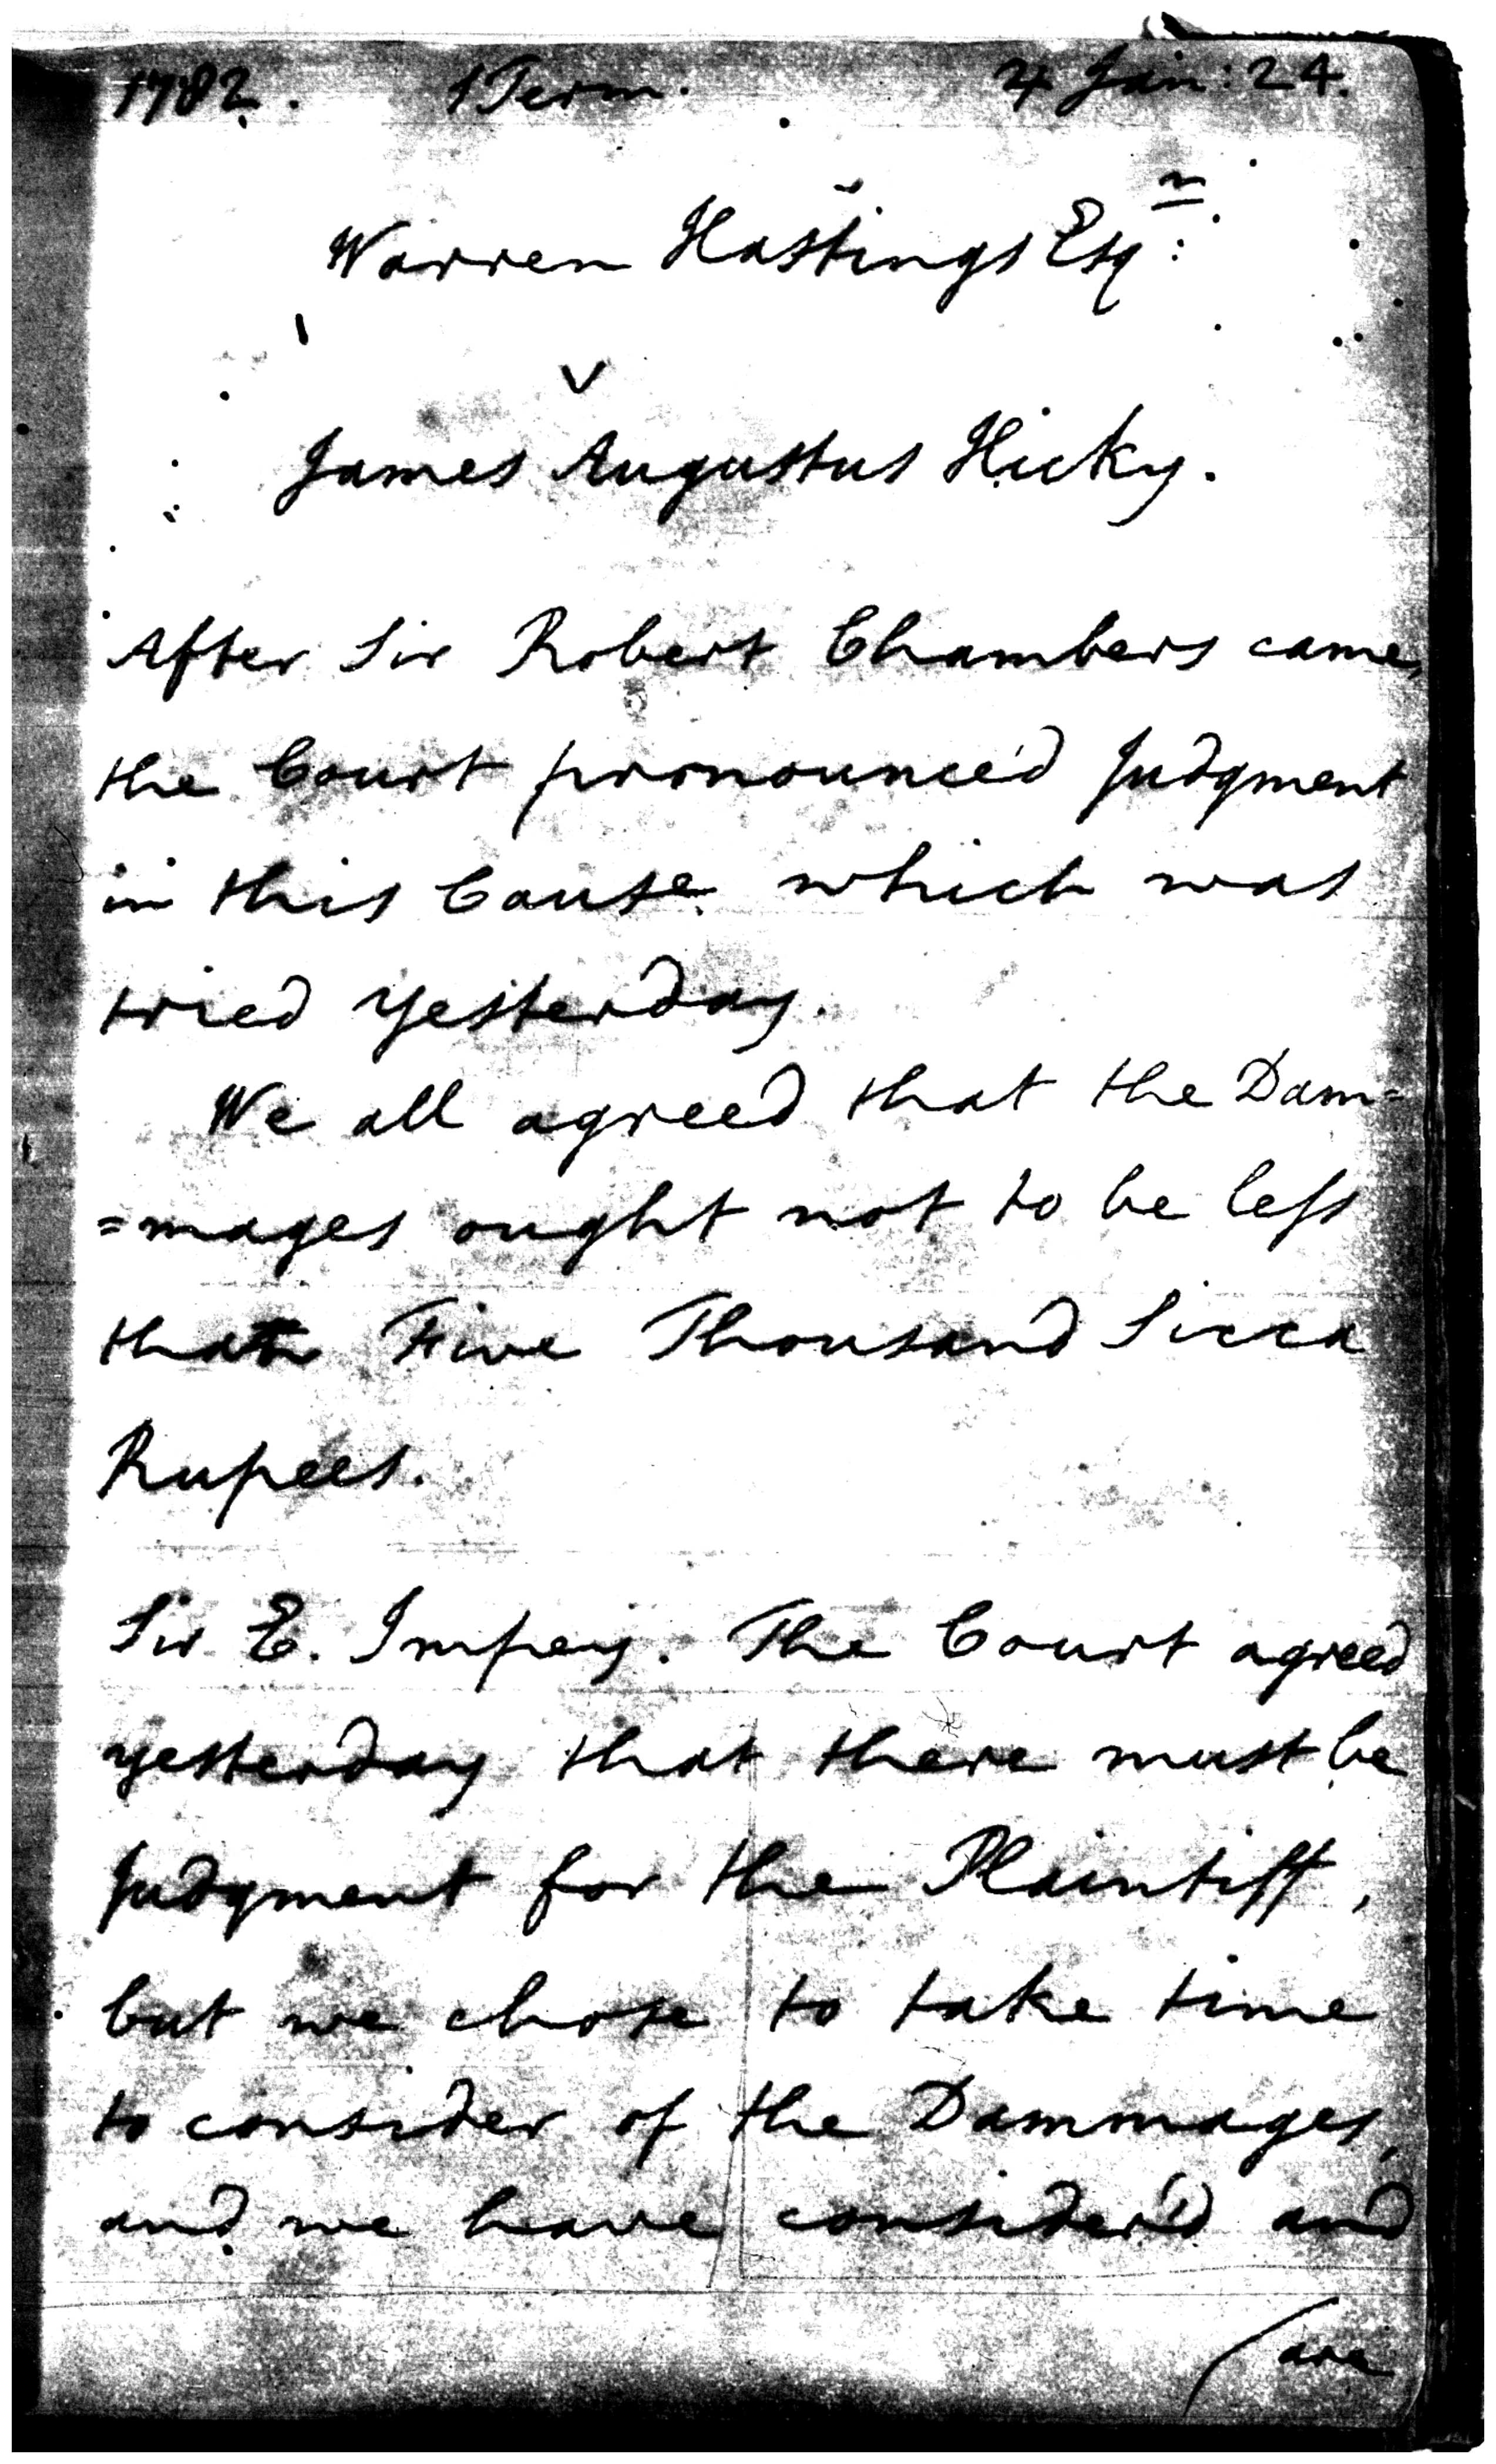 1782. 1 Term. 4 Jan: 24.
Warren Hastings Esqr:
v
James Augustus Hicky.
After Sir Robert Chambers came,
the Court pronounce'd Judgment
in this Cause which was
tried yesterday.
We all agreed that the Dam=
=mages ought not to be leſs
than Five Thousand Sicca
Rupees.
Sir E. Impey. The Court agreed
yesterday that there must be
Judgment for the Plaintiff,
but we chose to take time
to consider of the Dammages,
and we have consider'd and
(are